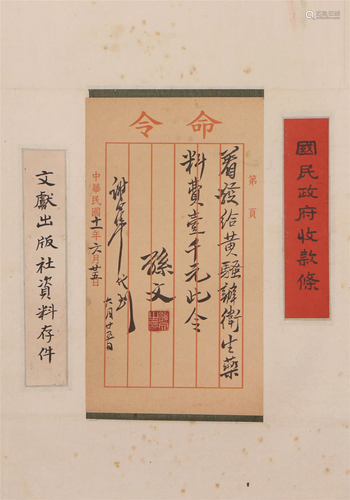 國民政府收款條
命令
第 頁
着發給黃騷辦衛生藥
料費壹千元此令
孫文
六月十三日
中華民國十一年六月廿五日
文獻出版社資料存件